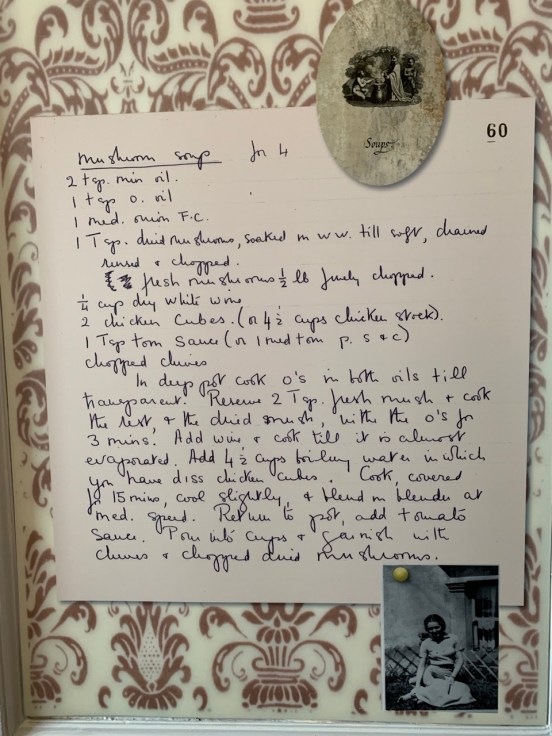 Soups
60
mushroom soup for 4
2 tsp. min oil.
1 tsp o. oil
1 med. onion F.C.
1 Tsp. dried mushrooms, soaked in w w. till soft, drained
rinsed & chopped.
fresh mushrooms ½ lb finely chopped.
¼ cup dry white wine
2 chicken cubes. (or 4½ cups chicken stock).
1 Tsp tom sauce (or 1 med tom p. s & c)
chopped chives
In deep pot cook o's in both oils till
transparent. Reserve 2 Tsp. fresh mush & cook
the rest, & the dried mush, with the o's for
3 mins. Add wine & cook till it is almost
evaporated. Add 4½ cups boiling water in which
you have diss chicken cubes. Cook, covered
for 15 mins, cool slightly, & blend in blender at
med. speed. Return to pot, add tomato
sauce. Pour into cups & garnish with
chives & chopped dried mushrooms.